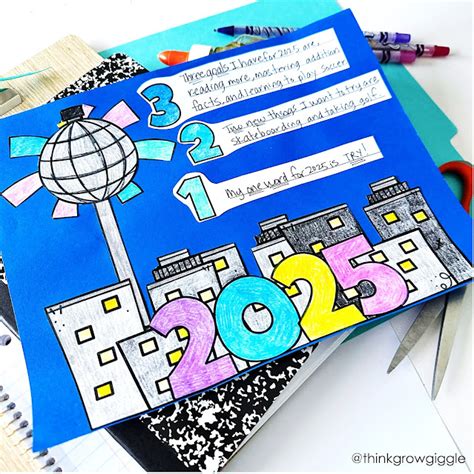 3
Three goals I have for 2025 are,
reading more, mastering addition
facts, and learning to play soccer.
2
Two new things I want to try are
skateboarding and taking golf.
1
My one word for 2025 is TRY!
2025
@thinkgrowgiggle